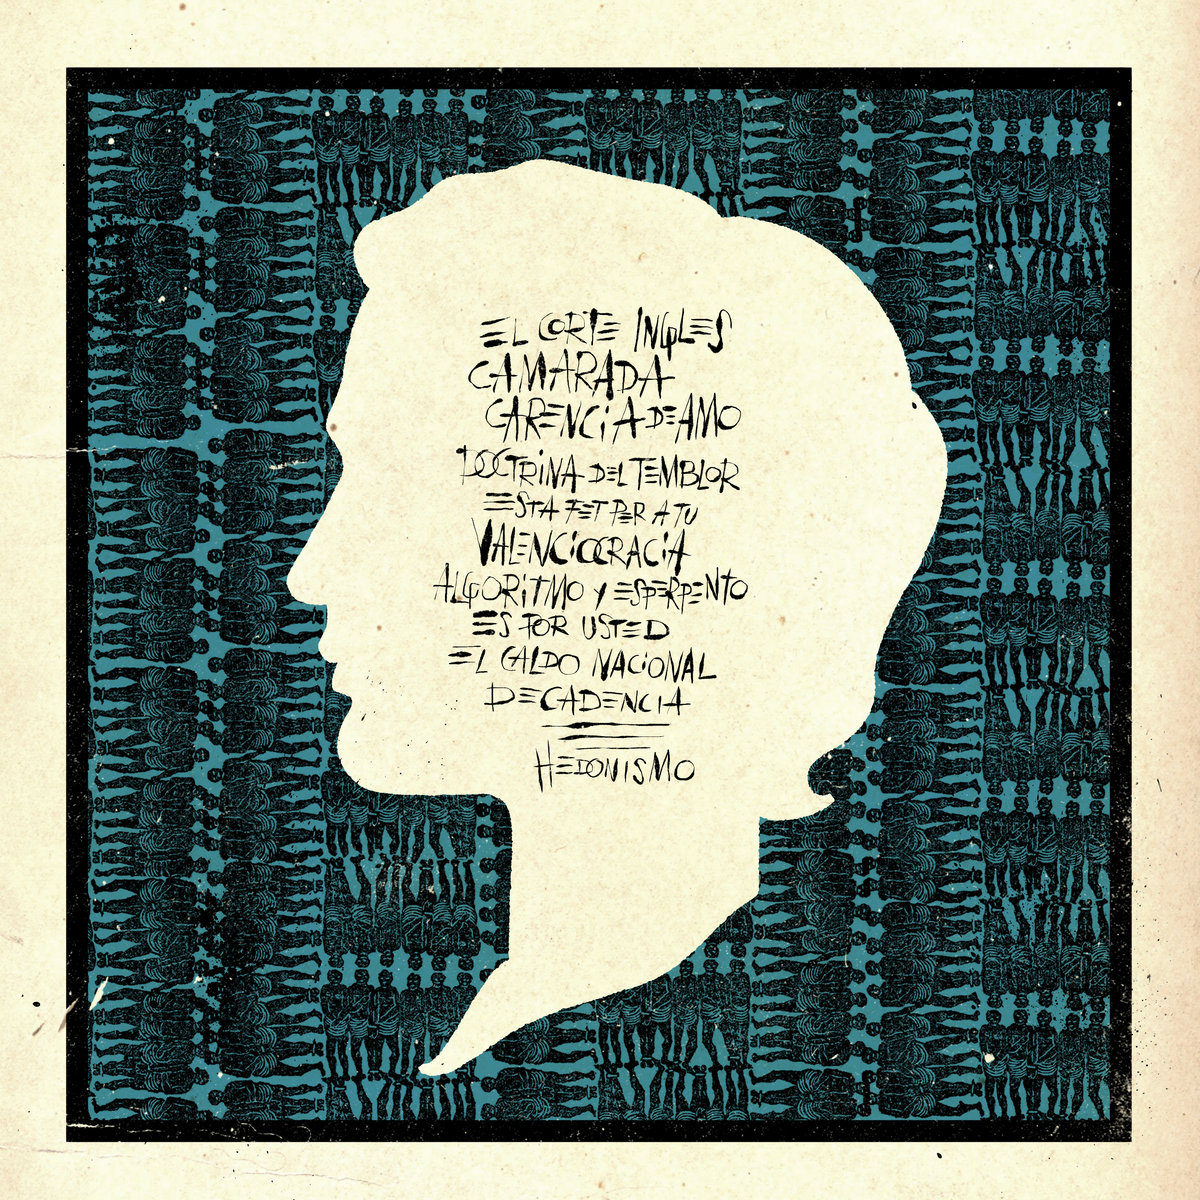 EL CORTE INGLES
CAMARADA
CARENCIA DE AMO
DOCTRINA DEL TEMBLOR
ESTA FET PER A TU
VALENCIOCRACIA
ALGORITMO Y ESPERPENTO
ES POR USTED
EL CALDO NACIONAL
DECADENCIA
HEDONISMO